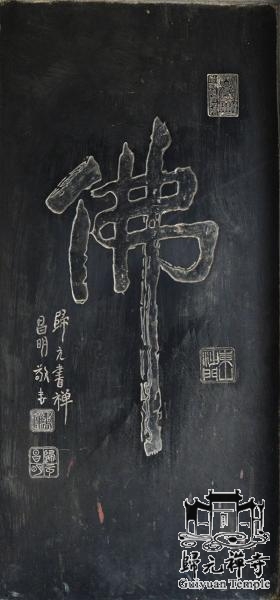 佛
歸元書禅
昌明敬書
歸元禪寺
Guiyuan Temple